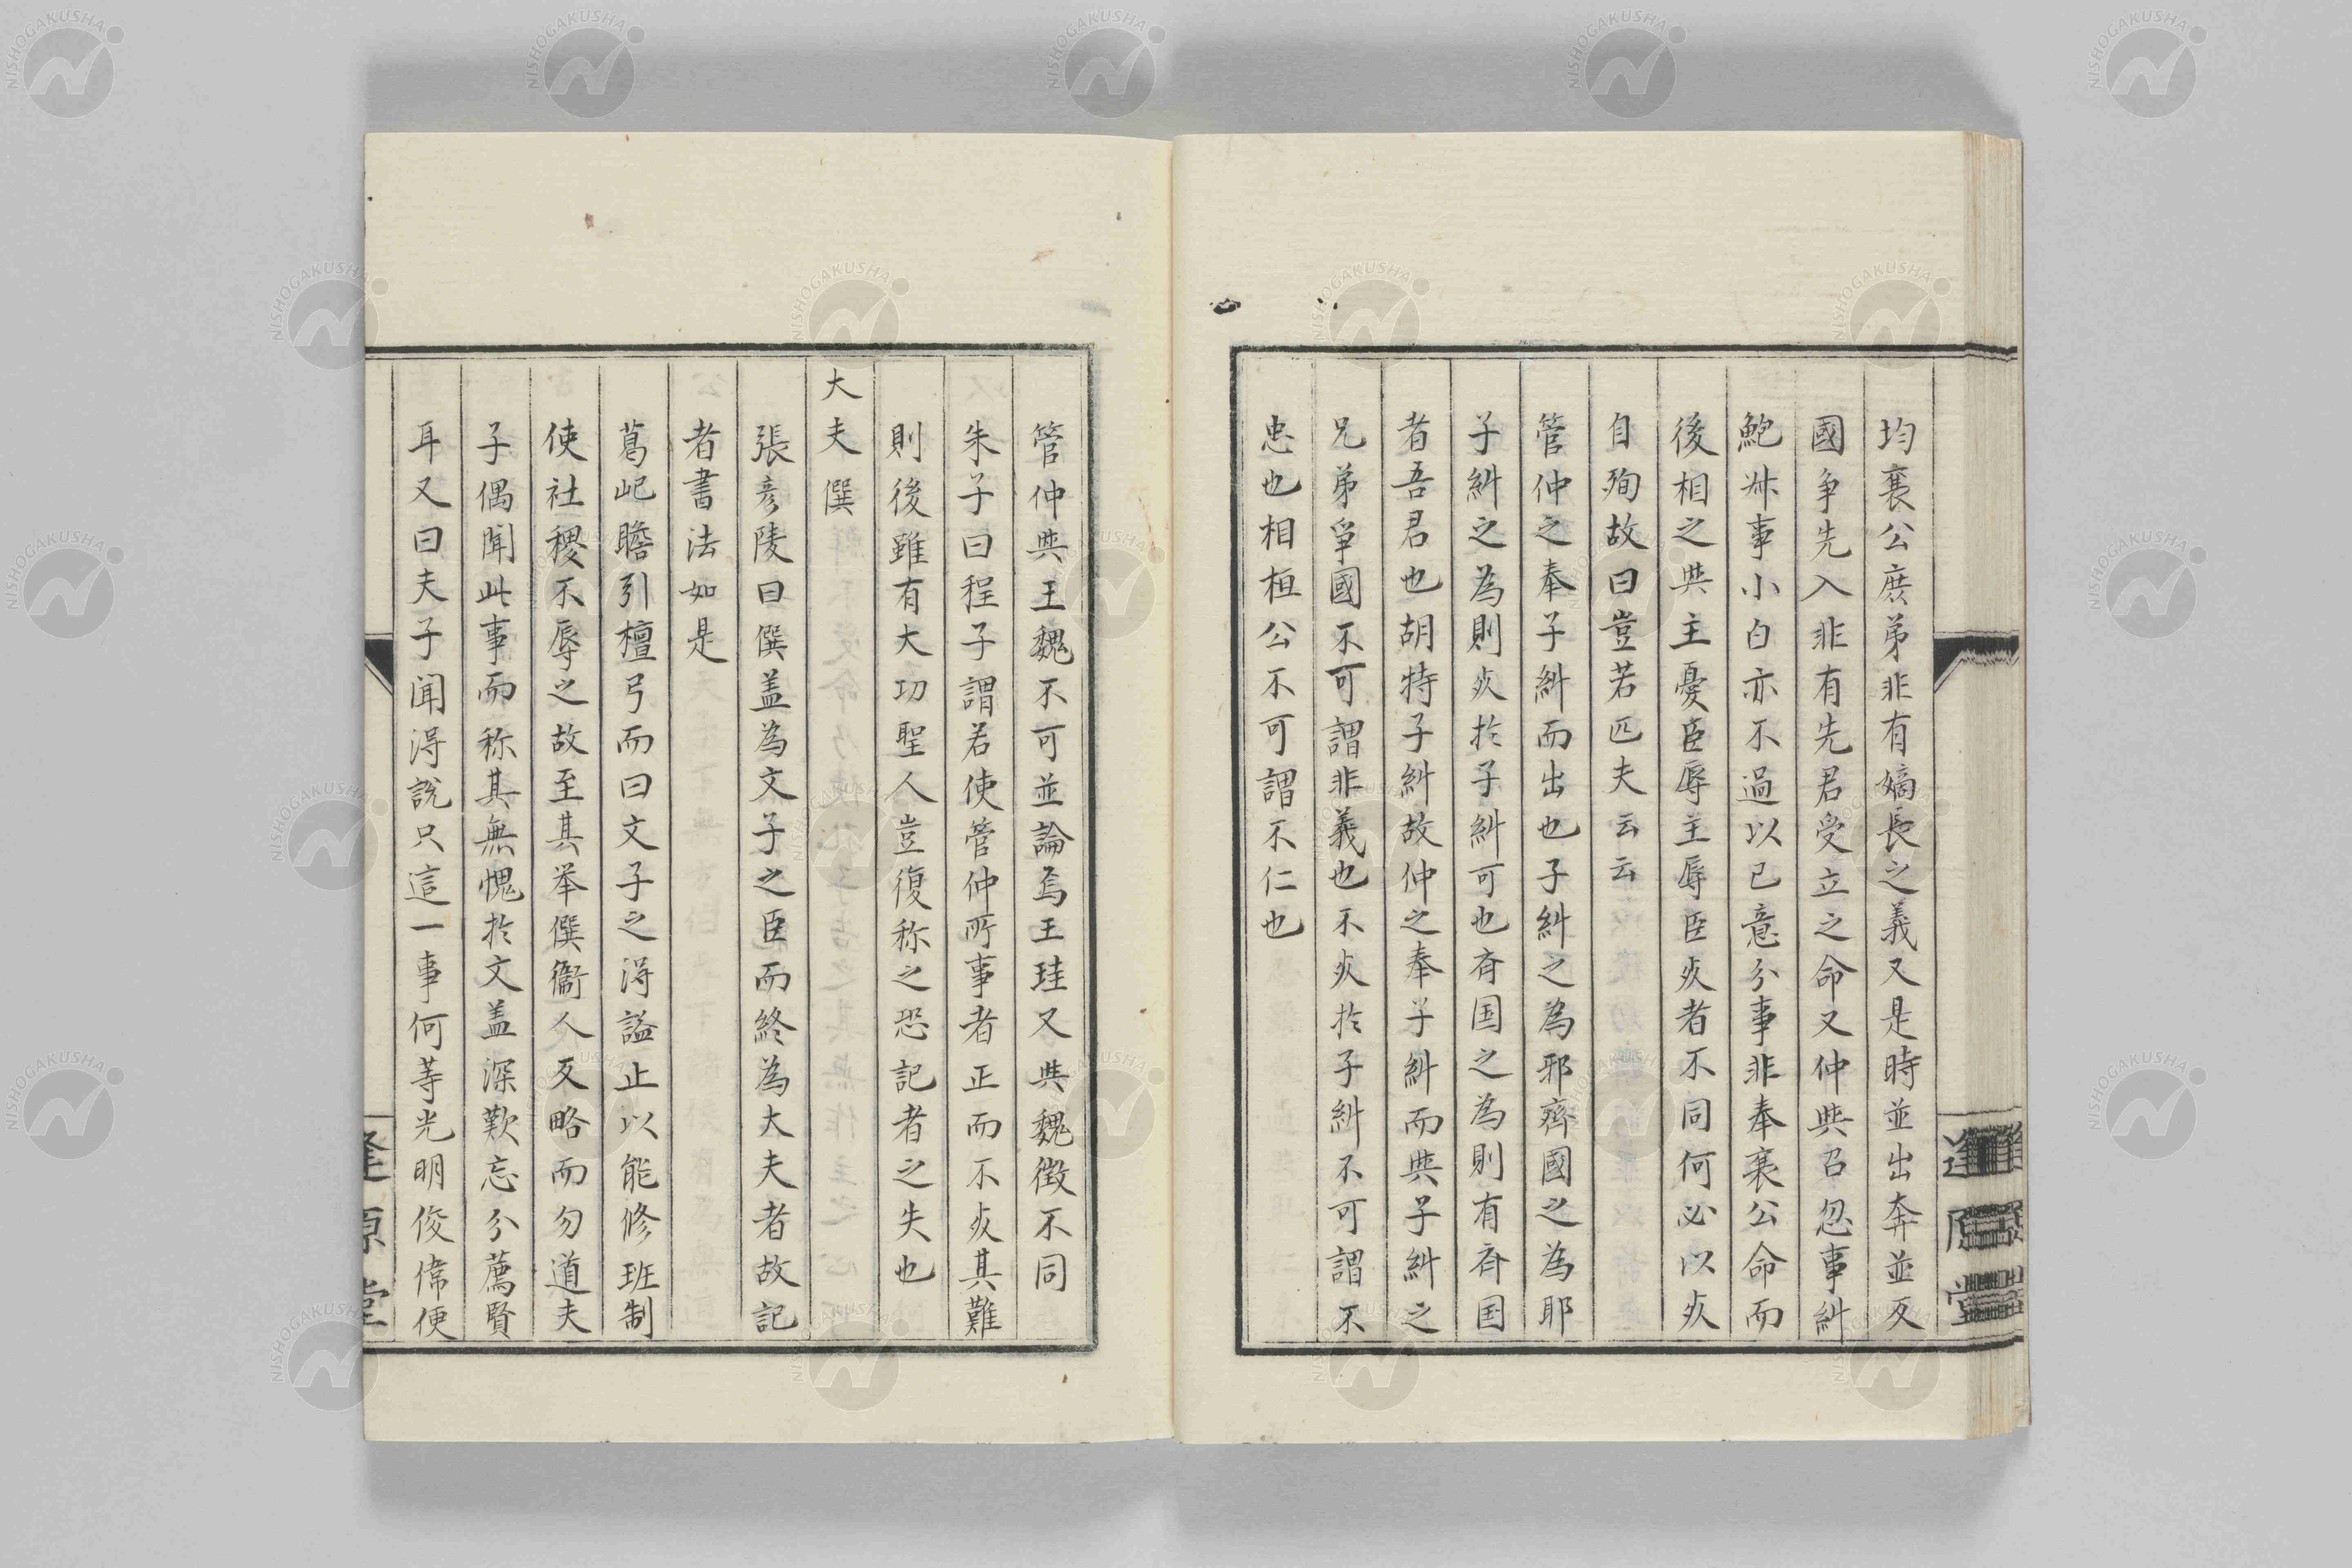 均襄公庶弟非有嫡長之義又是時並出奔並反
國爭先入非有先君受立之命又仲與召忽事糾
鮑叔事小白亦不過以己意分事非奉襄公命而
後相之與主憂臣辱主辱臣死者不同何必以死
自殉故曰豈若匹夫云云
管仲之奉子糾而出也子糾之為邪齊國之為耶
子糾之為則死於子糾可也斉国之為則有斉国
者吾君也胡特子糾故仲之奉子糾而與子糾之
兄弟爭國不可謂非義也不死於子糾不可謂不
忠也相桓公不可謂不仁也
管仲與王魏不可並論焉王珪又與魏徴不同
朱子曰程子謂若使管仲所事者正而不死其難
則後雖有大功聖人豈復称之恐記者之失也
大夫僎
張彦陵曰僎盖為文子之臣而終為大夫者故記
者書法如是
葛屺瞻引檀弓而曰文子之得謚止以能修班制
使社稷不辱之故至其举僎衞人反略而勿道夫
子偶聞此事而称其無愧於文盖深歎忘分薦賢
耳又曰夫子聞得說只這一事何等光明俊偉便
逢原堂